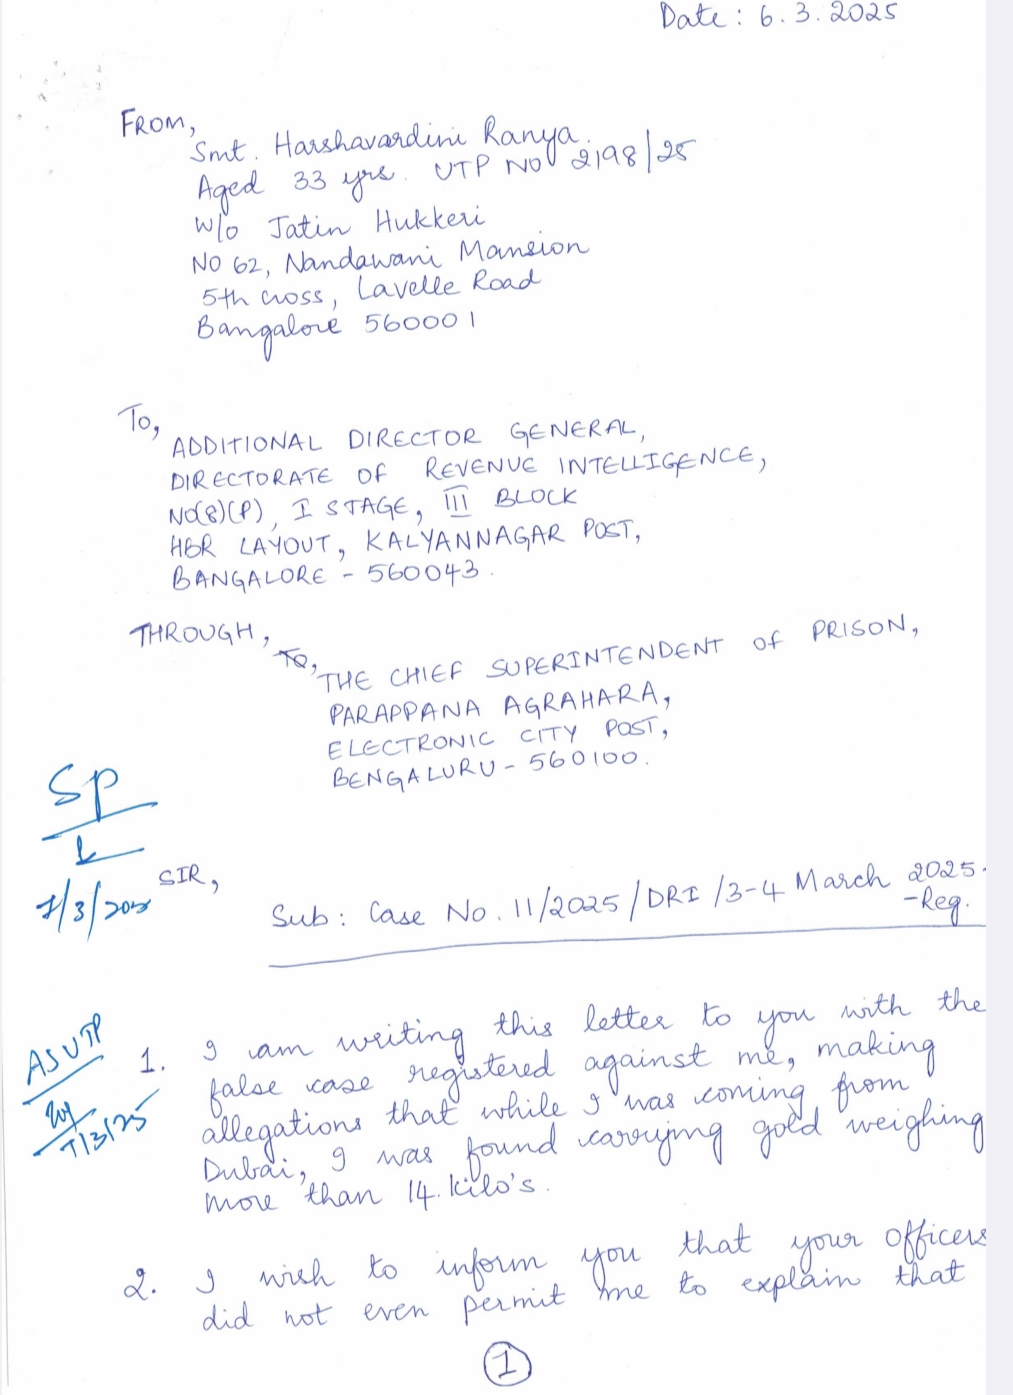 Date : 6.3.2025
FROM,
Smt. Harshavardini Ranya.
Aged 33 yrs. UTP NO 2198/25
W/o Jatin Hukkeri
NO 62, Nandawani Mansion
5th cross, Lavelle Road
Bangalore 560001
To,
ADDITIONAL DIRECTOR GENERAL,
DIRECTORATE OF REVENUE INTELLIGENCE,
NO(8)(P), I STAGE, III BLOCK
HBR LAYOUT, KALYANNAGAR POST,
BANGALORE - 560043.
THROUGH,
To,
THE CHIEF SUPERINTENDENT OF PRISON,
PARAPPANA AGRAHARA,
ELECTRONIC CITY POST,
BENGALURU - 560100.
SP
7/3/2025
SIR,
Sub : Case No. 11/2025/DRI/3-4 March 2025
-Reg.
ASUTP
7/3/25
1. I am writing this letter to you with the
false case registered against me, making
allegations that while I was coming from
Dubai, I was found carrying gold weighing
more than 14. kilo's.
2. I wish to inform you that your officers
did not even permit me to explain that
1